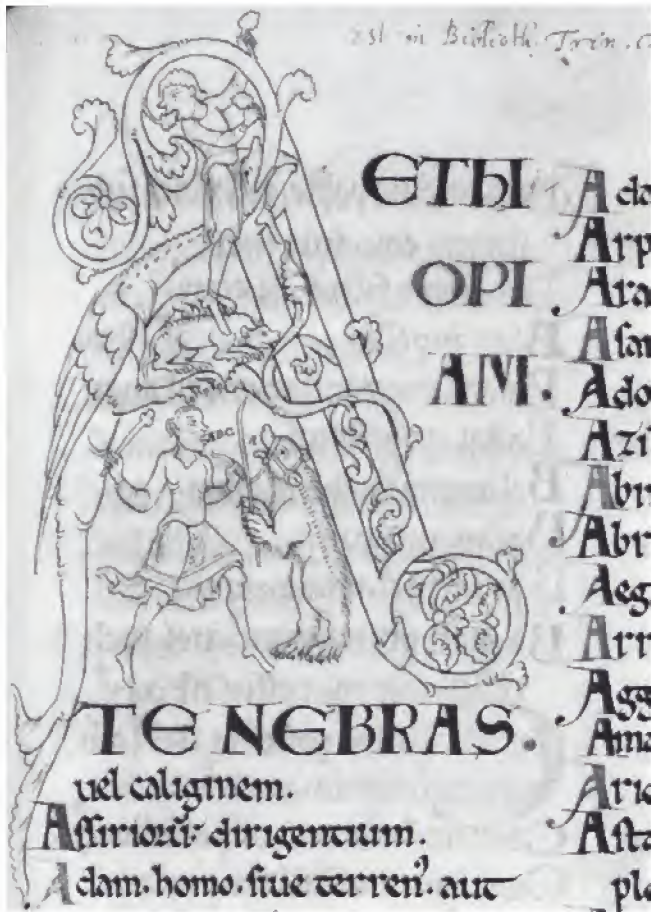 est in Biblioth. Trin. C
ETHI
OPI
AM.
ABC
A
TENEBRAS.
uel caliginem.
Assirioru͛ dirigentium.
Adam. homo. siue terren᾽. aut
Ada
Arp
Ara
Asa
Ado
Azi
Abi
Abr
Aeg
Arr
Agg
Ama
Aric
Asta
pla